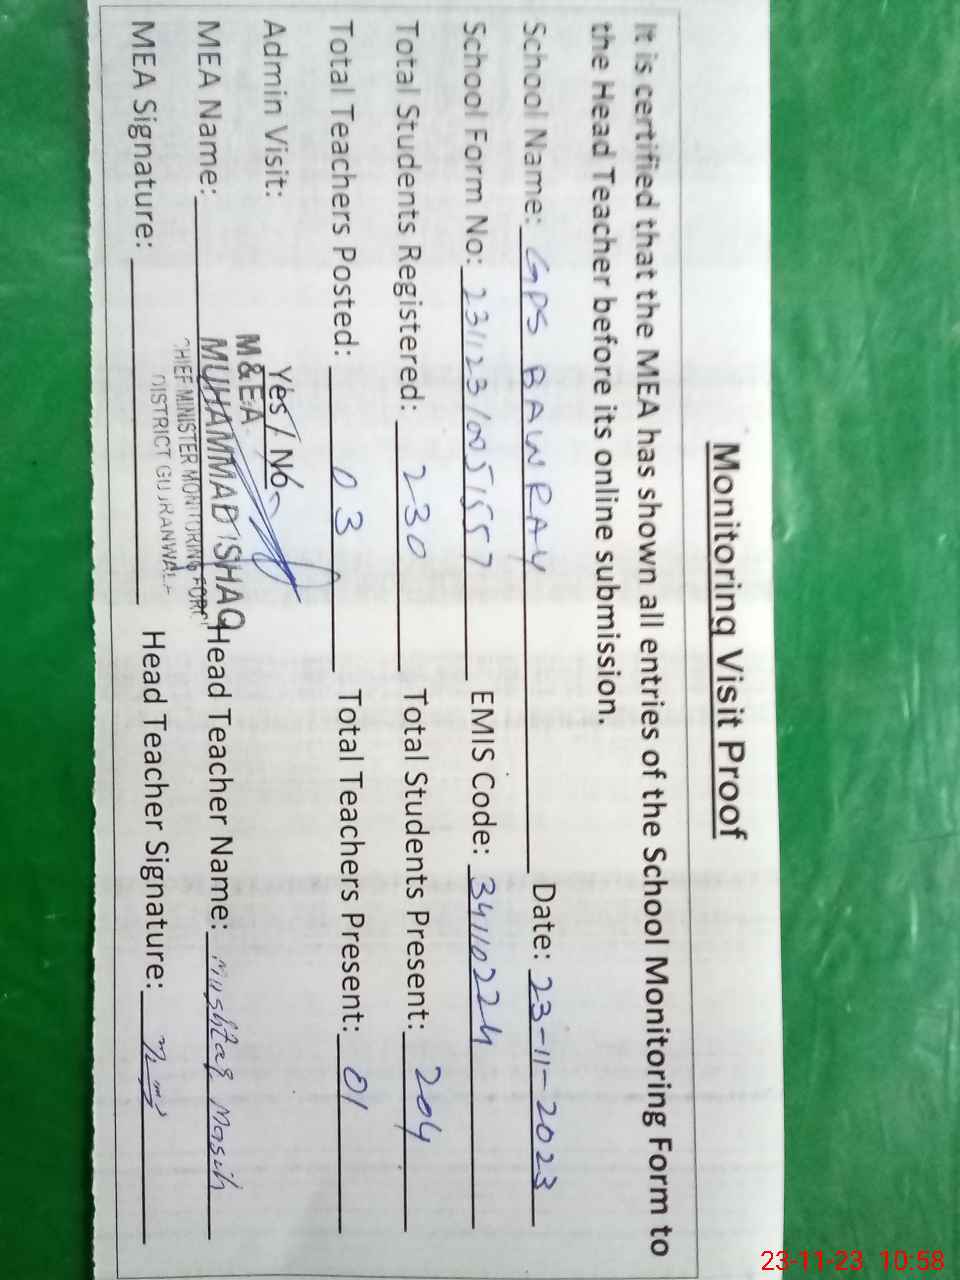 Monitoring Visit Proof
It is certified that the MEA has shown all entries of the School Monitoring Form to
the Head Teacher before its online submission.
School Name: GPS BAWRAY Date: 23-11-2023
School Form No: 231123/005155 EMIS Code: 34110224
Total Students Registered: 230 Total Students Present: 204
Total Teachers Posted: 03 Total Teachers Present: 01
Admin Visit: Yes / No
M&E.A.
MEA Name: MUHAMMAD ISHAQ Head Teacher Name: Mushtaq Masih
CHIEF MINISTER MONITORING FORC
MEA Signature: DISTRICT GUJRANWALA Head Teacher Signature:
23-11-23 10:58